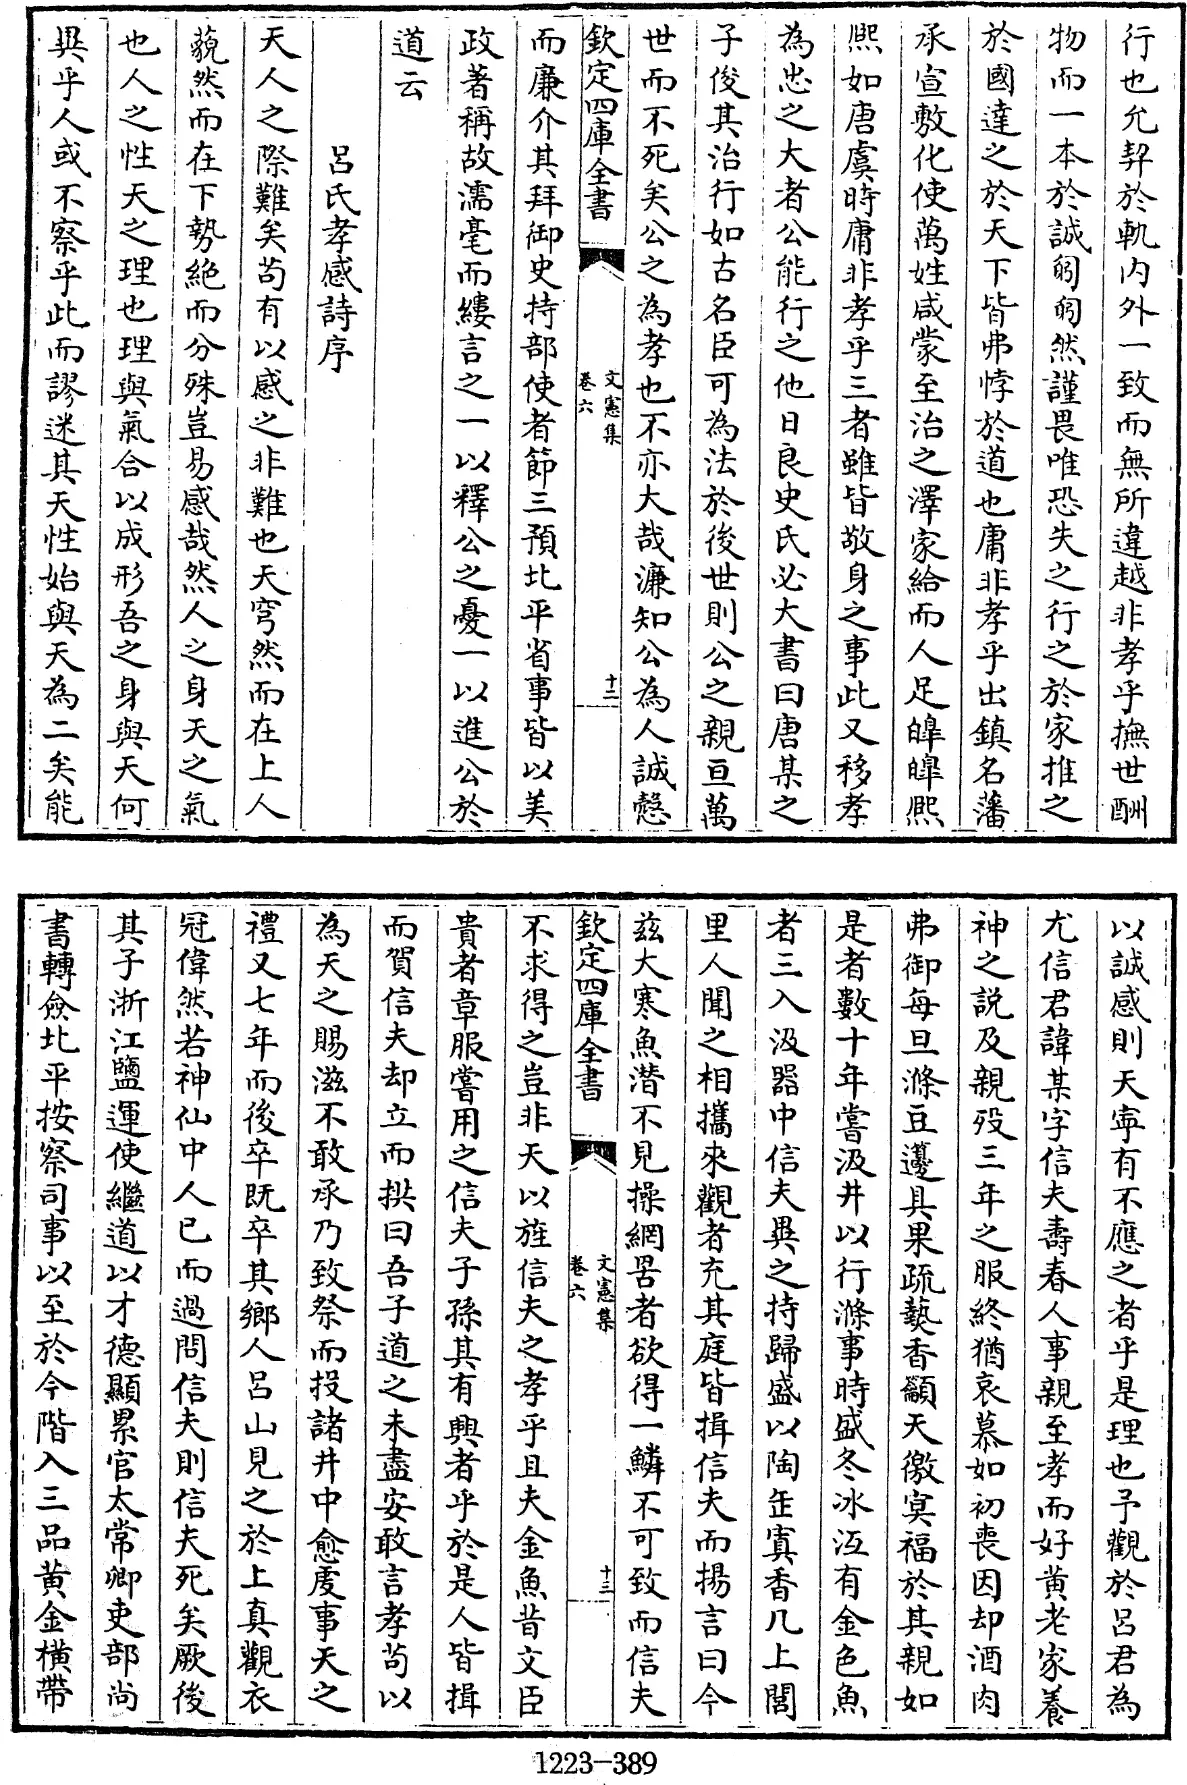 行也允契於軌内外一致而無所違越非孝乎撫世酬
物而一本於誠䠶䠶然謹畏唯恐失之行之於家推之
於國達之於天下皆弗悖於道也庸非孝乎出鎮名藩
承宣敷化使萬姓咸蒙至治之澤家給而人足皥皥熙
熙如唐虞時庸非孝乎三者雖皆敬身之事此又移孝
為忠之大者公能行之他日良史氏必大書曰唐某之
子俊其治行如古名臣可為法於後世則公之親亘萬
世而不死矣公之為孝也不亦大哉濂知公為人誠慤
欽定四庫全書
文憲集
卷六
十二
而廉介其拜御史持部使者節三預北平省事皆以美
政著稱故濡毫而縷言之一以釋公之憂一以進公於
道云
呂氏孝感詩序
天人之際難矣苟有以感之非難也天穹然而在上人
藐然而在下勢絶而分殊豈易感哉然人之身天之氣
也人之性天之理也理與氣合以成形吾之身與天何
異乎人或不察乎此而謬迷其天性始與天為二矣能
以誠感則天寧有不應之者乎是理也予觀於呂君為
尤信君諱某字信夫壽春人事親至孝而好黄老家養
神之説及親歿三年之服終猶哀慕如初喪因却酒肉
弗御每旦滌豆籩具果疏藝香籲天徼冥福於其親如
是者數十年嘗汲井以行滌事時盛冬冰冱有金色魚
者三入汲器中信夫異之持歸盛以陶缶寘香几上閭
里人聞之相攜來觀者充其庭皆揖信夫而揚言曰今
兹大寒魚潛不見操網罟者欲得一鱗不可致而信夫
欽定四庫全書
文憲集
卷六
十三
不求得之豈非天以旌信夫之孝乎且夫金魚昔文臣
貴者章服嘗用之信夫子孫其有興者乎於是人皆揖
而賀信夫却立而拱曰吾子道之未盡安敢言孝苟以
為天之賜滋不敢承乃致祭而投諸井中愈䖍事天之
禮又七年而後卒既卒其鄉人呂山見之於上真觀衣
冠偉然若神仙中人已而過問信夫則信夫死矣厥後
其子浙江鹽運使繼道以才德顯累官太常卿吏部尚
書轉僉北平按察司事以至於今階入三品黄金横帶
1223-389